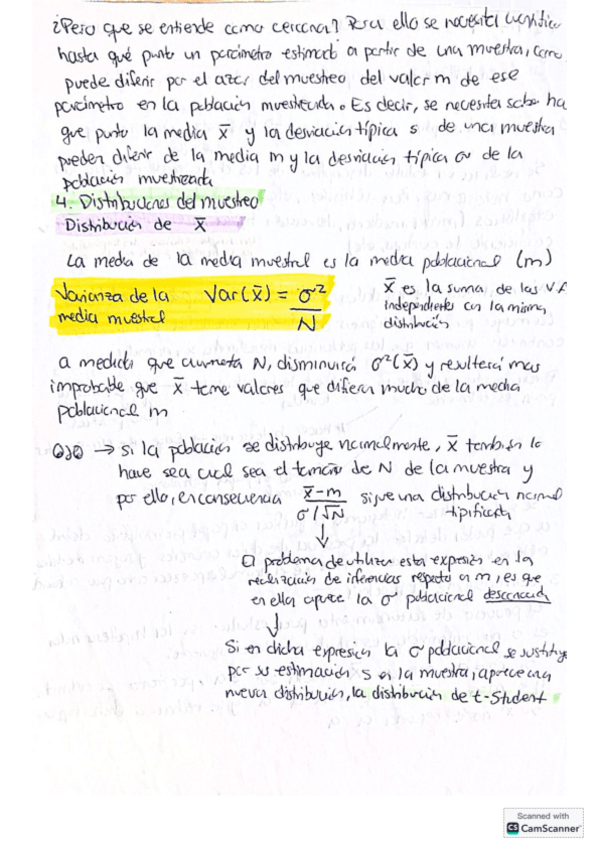 ¿Pero que se entiende como cercana? Para ello se necesita cuantificar
hasta qué punto un parámetro estimado a partir de una muestra, como
puede diferir por el azar del muestreo del valor m de ese
parámetro en la población muestreada. Es decir, se necesita saber ha
que punto la media x̄ y la desviación típica s de una muestra
pueden diferir de la media m y la desviación típica σ de la
población muestreada
4. Distribuciones del muestreo
Distribución de x̄
La media de la media muestral es la media poblacional (m)
Varianza de la media muestral Var(x̄) = σ²/N
x̄ es la suma de las V.A
independientes con la misma
distribución
a medida que aumenta N, disminuirá σ²(x̄) y resultará mas
improbable que x̄ tome valores que difieran mucho de la media
poblacional m
OJO → Si la población se distribuye normalmente, x̄ también lo
hace sea cual sea el tamaño de N de la muestra y
por ello, en consecuencia x̄-m / σ/√N sigue una distribución normal
tipificada
↓
El problema de utilizar esta expresión en la
realización de inferencias respecto a m, es que
en ella aparece la σ poblacional desconocida
↓
Si en dicha expresión la σ poblacional se sustituye
por su estimación s en la muestra, aparece una
nueva distribución, la distribución de t-Student
Scanned with
CS CamScanner